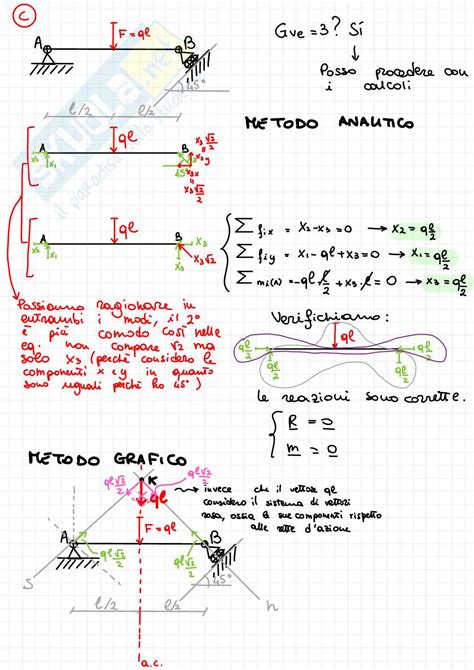 C
Gve = 3? Sí
↓
Posso procedere con
i calcoli
A
F = ql
B
45°
l/2
l/2
METODO ANALITICO
SKUOLA.net
il paradiso dello
x₂
A
x₁
ql
B
x₃√2/2
x₃y
45°
x₃
x₃x
x₃√2/2
x₂
A
x₁
ql
B
x₃
x₃
x₃√2
∑fix = x₂-x₃ = 0 → x₂ = ql/2
∑fiy = x₁-ql+x₃ = 0 → x₁ = ql/2
∑mi(A) = -ql l/2 + x₃ l = 0 → x₃ = ql/2
Possiamo ragionare in
entrambi i modi, il 2°
è più comodo così nelle
eq. non compare √2 ma
solo x₃ (perché considero le
componenti x e y in quanto
sono uguali perché ho 45°)
Verifichiamo:
ql
ql/2
ql/2
ql/2
ql/2
le reazioni sono corrette.
R = 0
m = 0
METODO GRAFICO
K
ql√2/2
ql√2/2
ql
invece che il vettore ql
considero il sistema di vettori
rosa, ossia le sue componenti rispetto
alle rette d'azione
A
F = ql
B
ql√2/2
ql√2/2
45°
s
l/2
l/2
r
a.c.